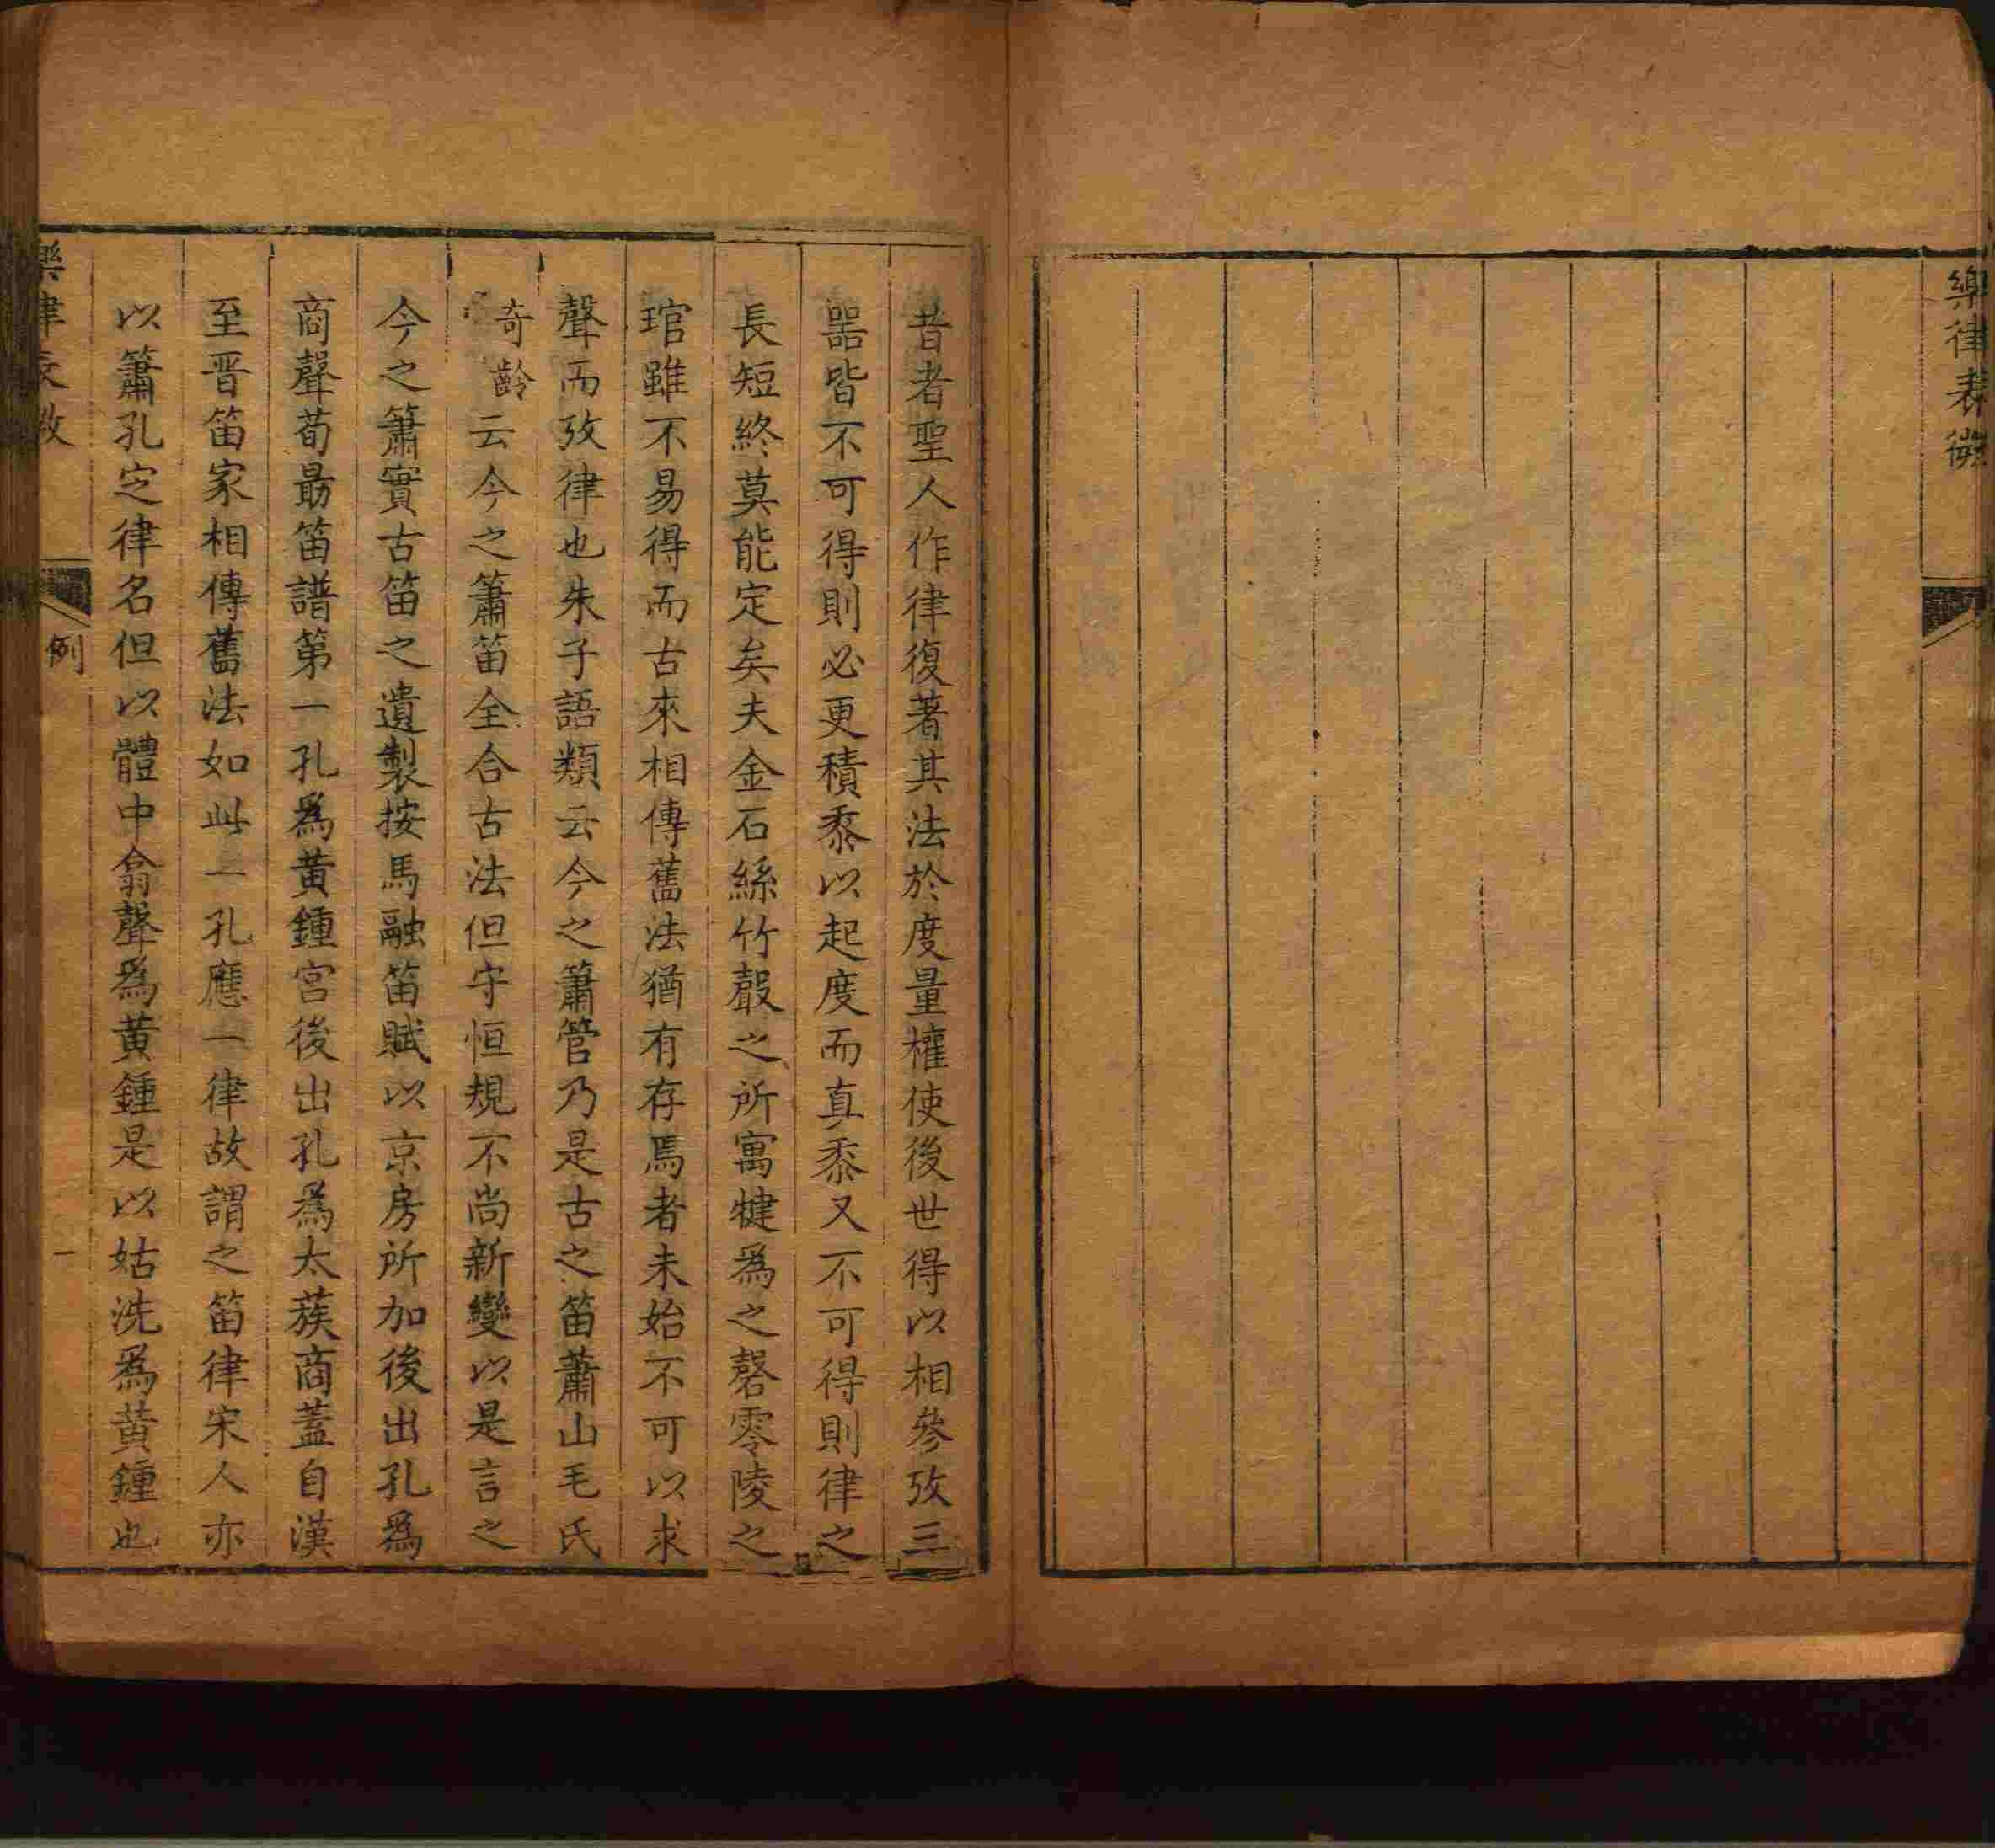 樂律表微
昔者聖人作律復著其法於度量權使後世得以相參攷三
噐皆不可得則必更積黍以起度而真黍又不可得則律之
長短終莫能定矣夫金石絲竹聲之所寓犍爲之磬零陵之
琯雖不易得而古來相傳舊法猶有存焉者未始不可以求
聲而攷律也朱子語類云今之簫管乃是古之笛蕭山毛氏
奇齡云今之簫笛全合古法但守恒規不尚新變以是言之
今之簫實古笛之遺製按馬融笛賦以京房所加後出孔爲
商聲荀勗笛譜第一孔爲黃鍾宮後出孔爲太蔟商蓋自漢
至晋笛家相傳舊法如此一孔應一律故謂之笛律宋人亦
以簫孔定律名但以體中翕聲爲黃鍾是以姑洗爲黃鍾也
樂律表微
例
一